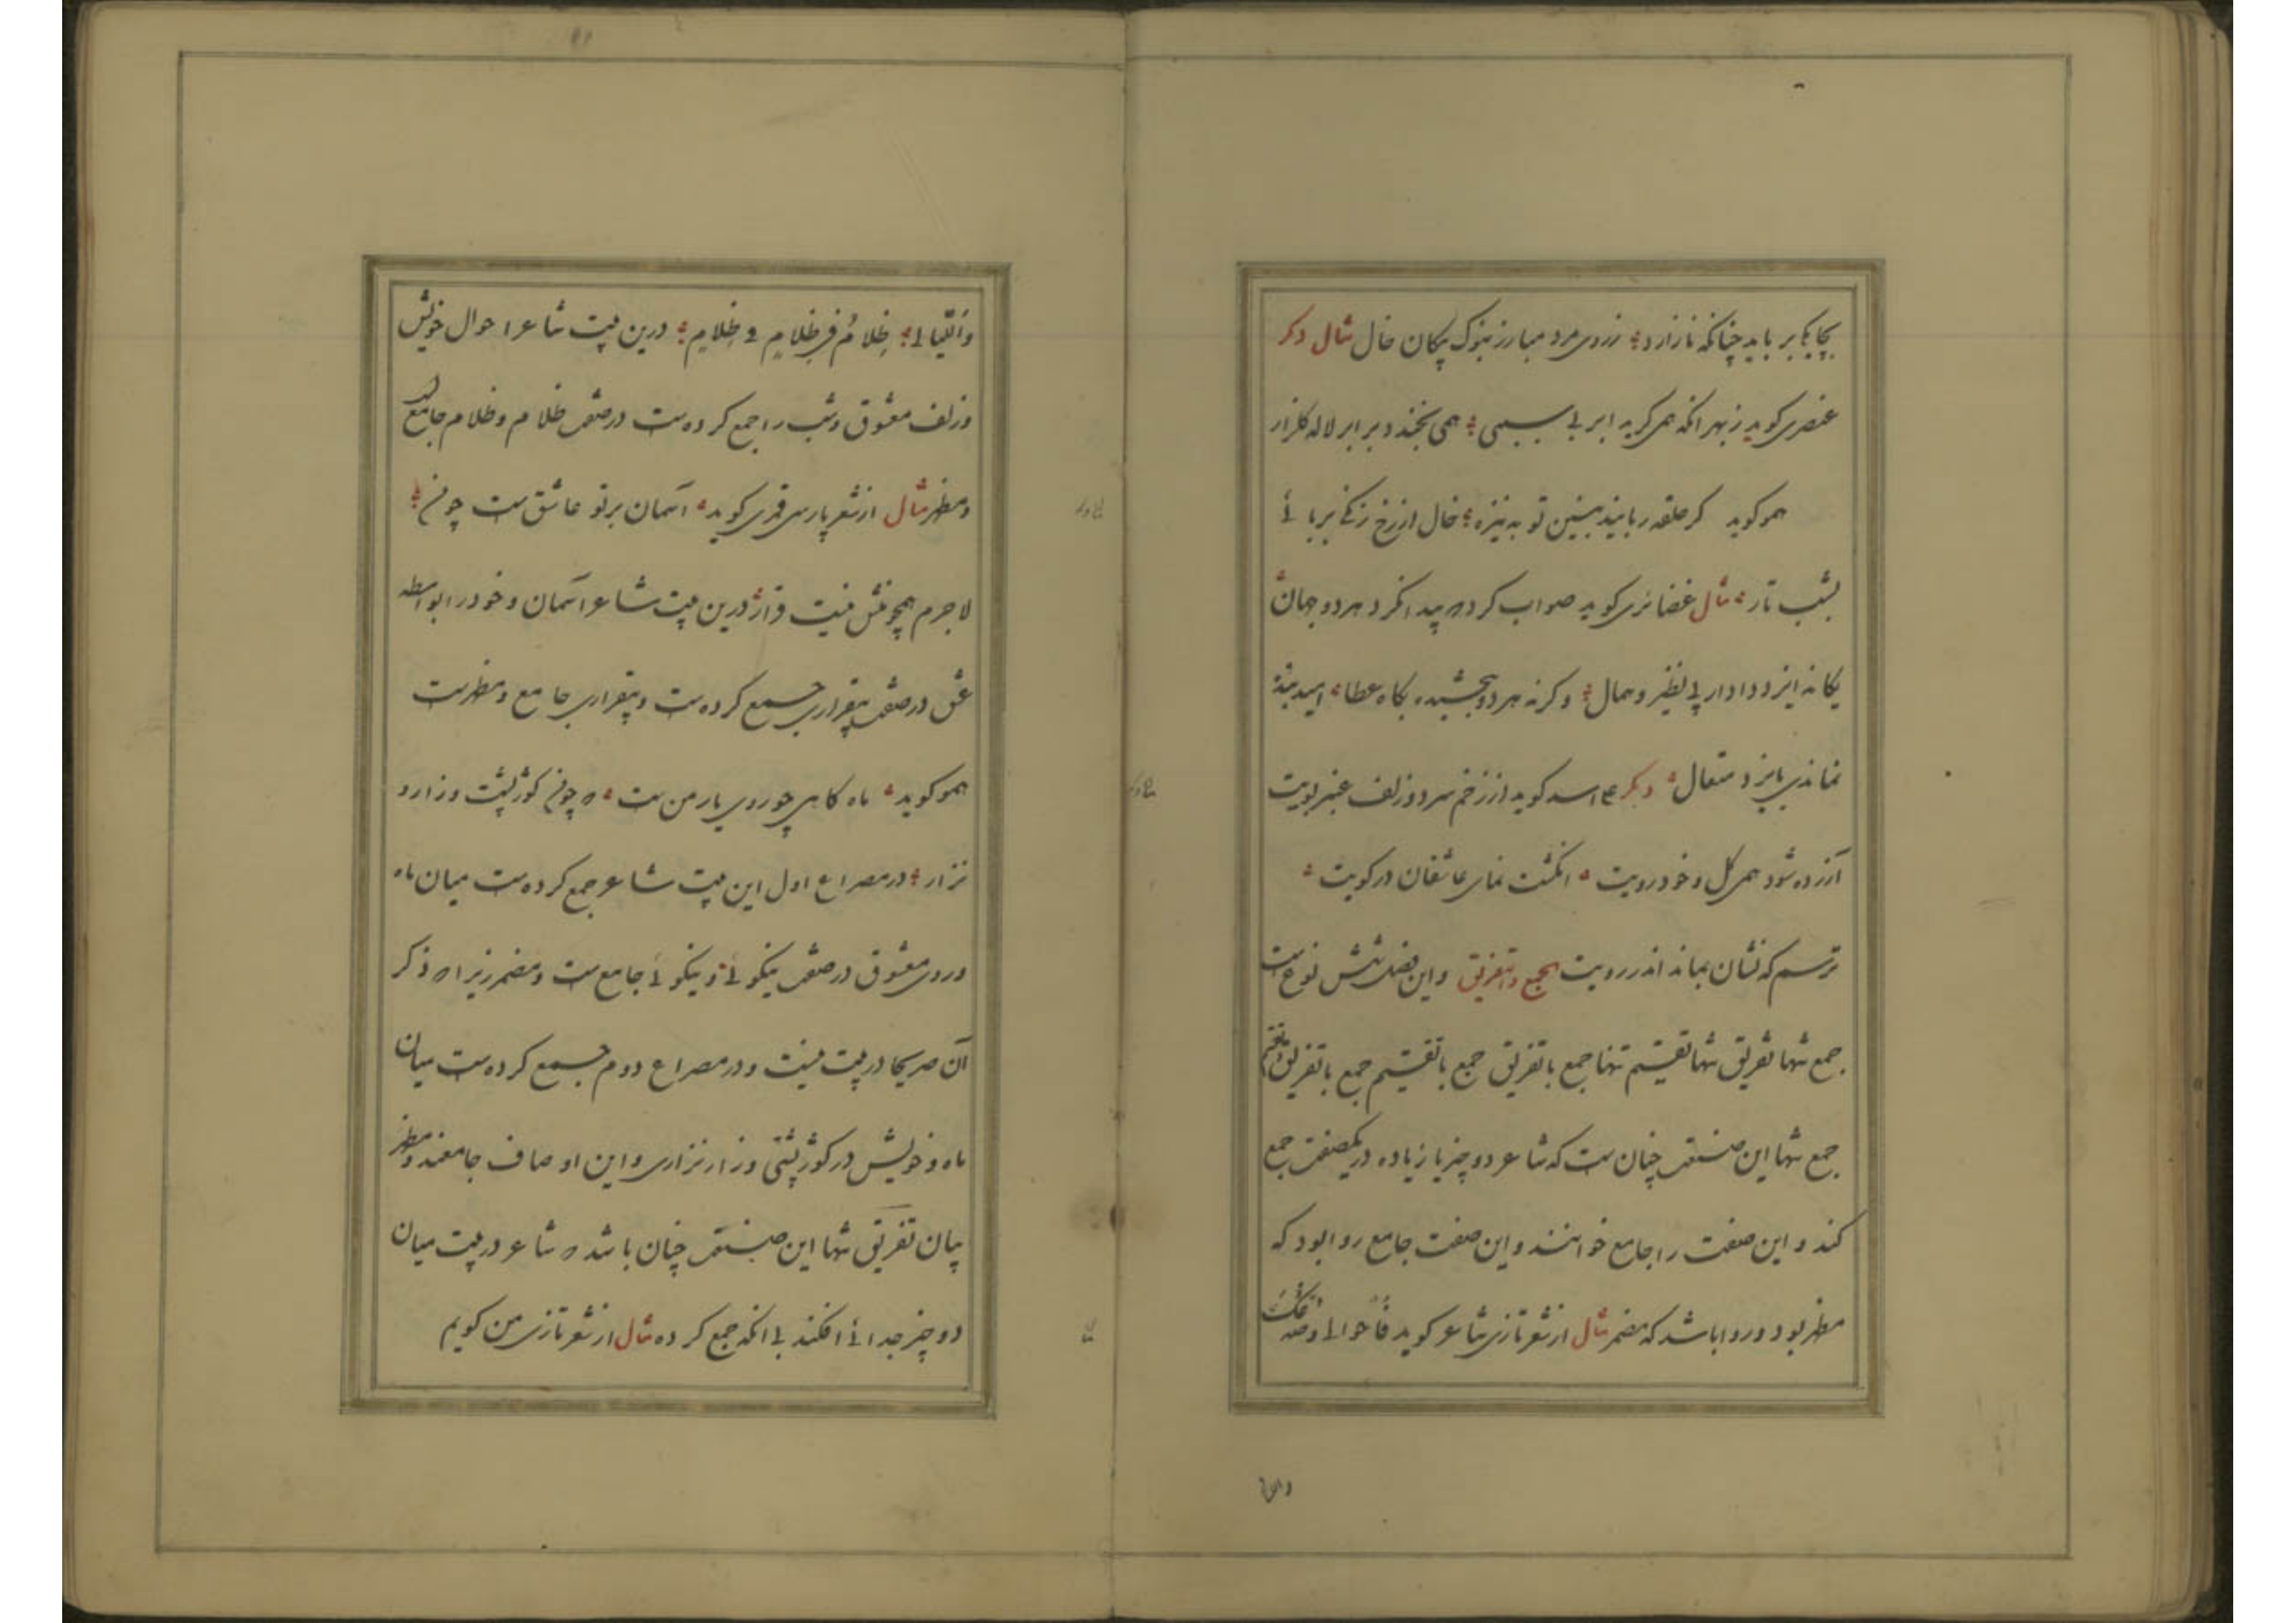 بچابکی بر باید چنانکه نازارد ز روی مرد مبارز بنوک پیکان خال مثال دگر
عنصری کوید ز بهر انکه همی کرید ابر بی سببی همی بخندد بر ابر لاله کلزار
همو کوید کر حلقه ربایند ببینی تو به نیزه خال از رخ زنکی بربائی
بشب تار مثال غضائری کوید صواب کرد ه پیدا نکرد هر دو جهان
یکانه ایزد دادار بی نظیر و همال وکرنه هر دو ببخشیدی بکاه عطا امید بنده
نماندی بایزد متعال دیکر کوید از زخم سر دو زلف عنبر بویت
آزرده شود همی کل و خود رویت انکشت نمای عاشقان در کویت
ترسم که نشان بماند اندر رویت الجمع و التفریق و این فصل شش نوع ست
جمع تنها تفریق تنها تقسیم تنها جمع با تفریق جمع با تقسیم جمع با تفریق و تقسیم
جمع تنها این صنعت چنان ست که شاعر دو چیز یا زیاده در یکصفت جمع
کند و این صفت را جامع خوانند و این صفت جامع روا بود که
مظهر بود و روا باشد که مضمر مثال از شعر تازی شاعر کوید فاحوالی و صدغک
واللیالی ظلام فی ظلام فی ظلام درین بیت شاعر احوال خویش
و زلف معشوق و شب را جمع کرده ست در صفت ظلام و ظلام جامع
و مظهر مثال از شعر پارسی قمری کوید آسمان بر تو عاشق ست چو من
لاجرم همچو منش نیست قرار درین بیت شاعر آسمان و خود را بواسطه
عشق در صفت بیقراری جمع کرده ست و بیقراری جامع و مظهرست
همو کوید ماه کاهی چو روی یار من ست ه چو من کوژ پشت و زار و
نزار در مصراع اول این بیت شاعر جمع کرده ست میان ماه
و روی معشوق در صفت نیکوئی و نیکوئی جامع ست و مضمر زیرا ه ذکر
آن صریحا در بیت نیست و در مصراع دوم جمع کرده ست میان
ماه و خویش در کوژ پشتی و زار نزاری و این اوصاف جامعند و مظهر
بیان تفریق تنها این صنعت چنان باشد ه شاعر در بیت میان
دو چیز جدائی افکند بی انکه جمع کرده مثال از شعر تازی من کویم